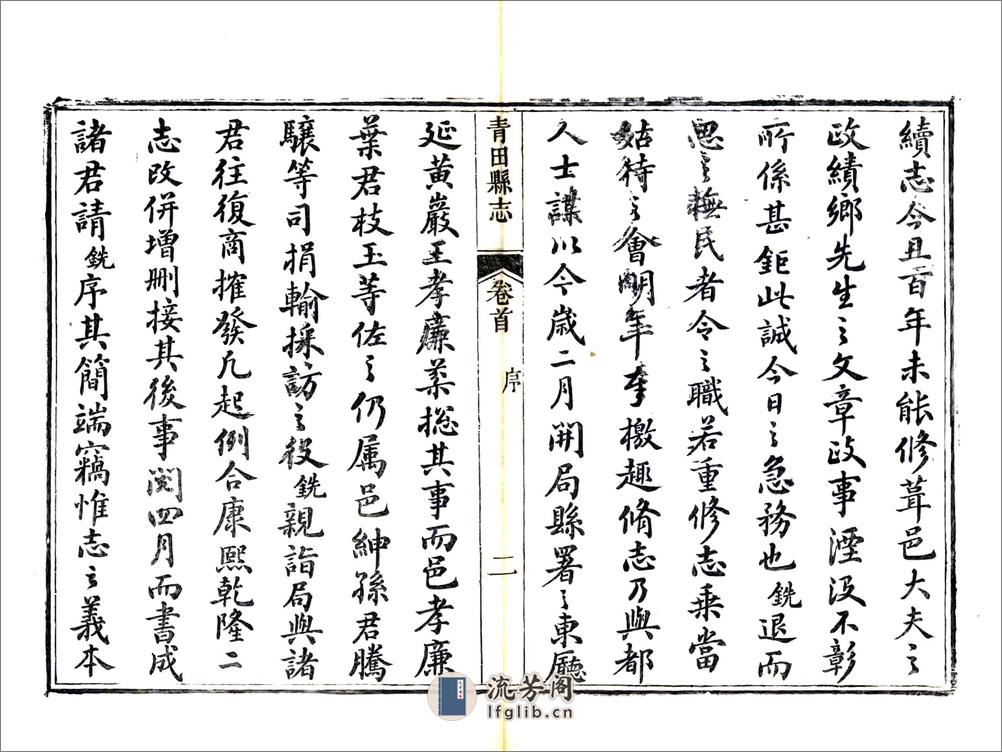 續志今且百年未能修葺邑大夫之
政績鄉先生之文章政事湮没不彰
所係甚鉅此誠今日之急務也銑退而
思之撫民者令之職若重修志乘當
姑待之會明年奉檄趣脩志乃與都
人士謀以今歲二月開局縣署之東廳
青田縣志
卷首
序
二
延黃巖王孝廉棻捴其事而邑孝廉
葉君枝玉等佐之仍属邑紳孫君騰
驤等司捐輸採訪之役銑親詣局與諸
君往復商搉發凡起例合康熙乾隆二
志改併增刪接其後事閱四月而書成
諸君請銑序其簡端竊惟志之義本
流芳阁
lfglib.cn